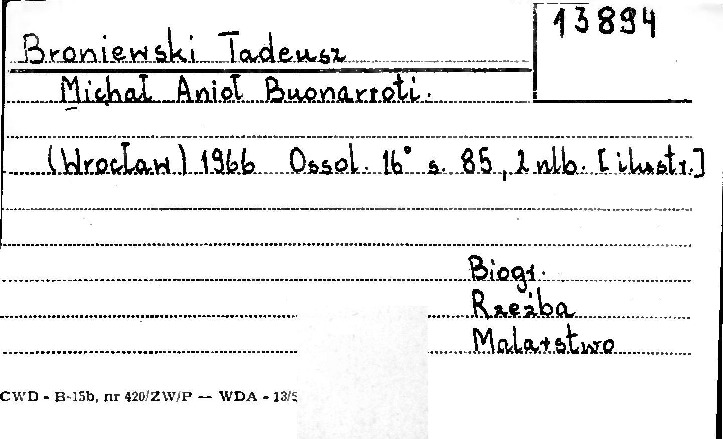 13894
Broniewski Tadeusz
Michał Anioł Buonarroti.
(Wrocław) 1966 Ossol. 16° s. 85, 2 nlb. [ilustr.]
Biogr.
Rzeźba
Malarstwo
CWD - B-15b, nr 420/ZW/P — WDA - 13/5